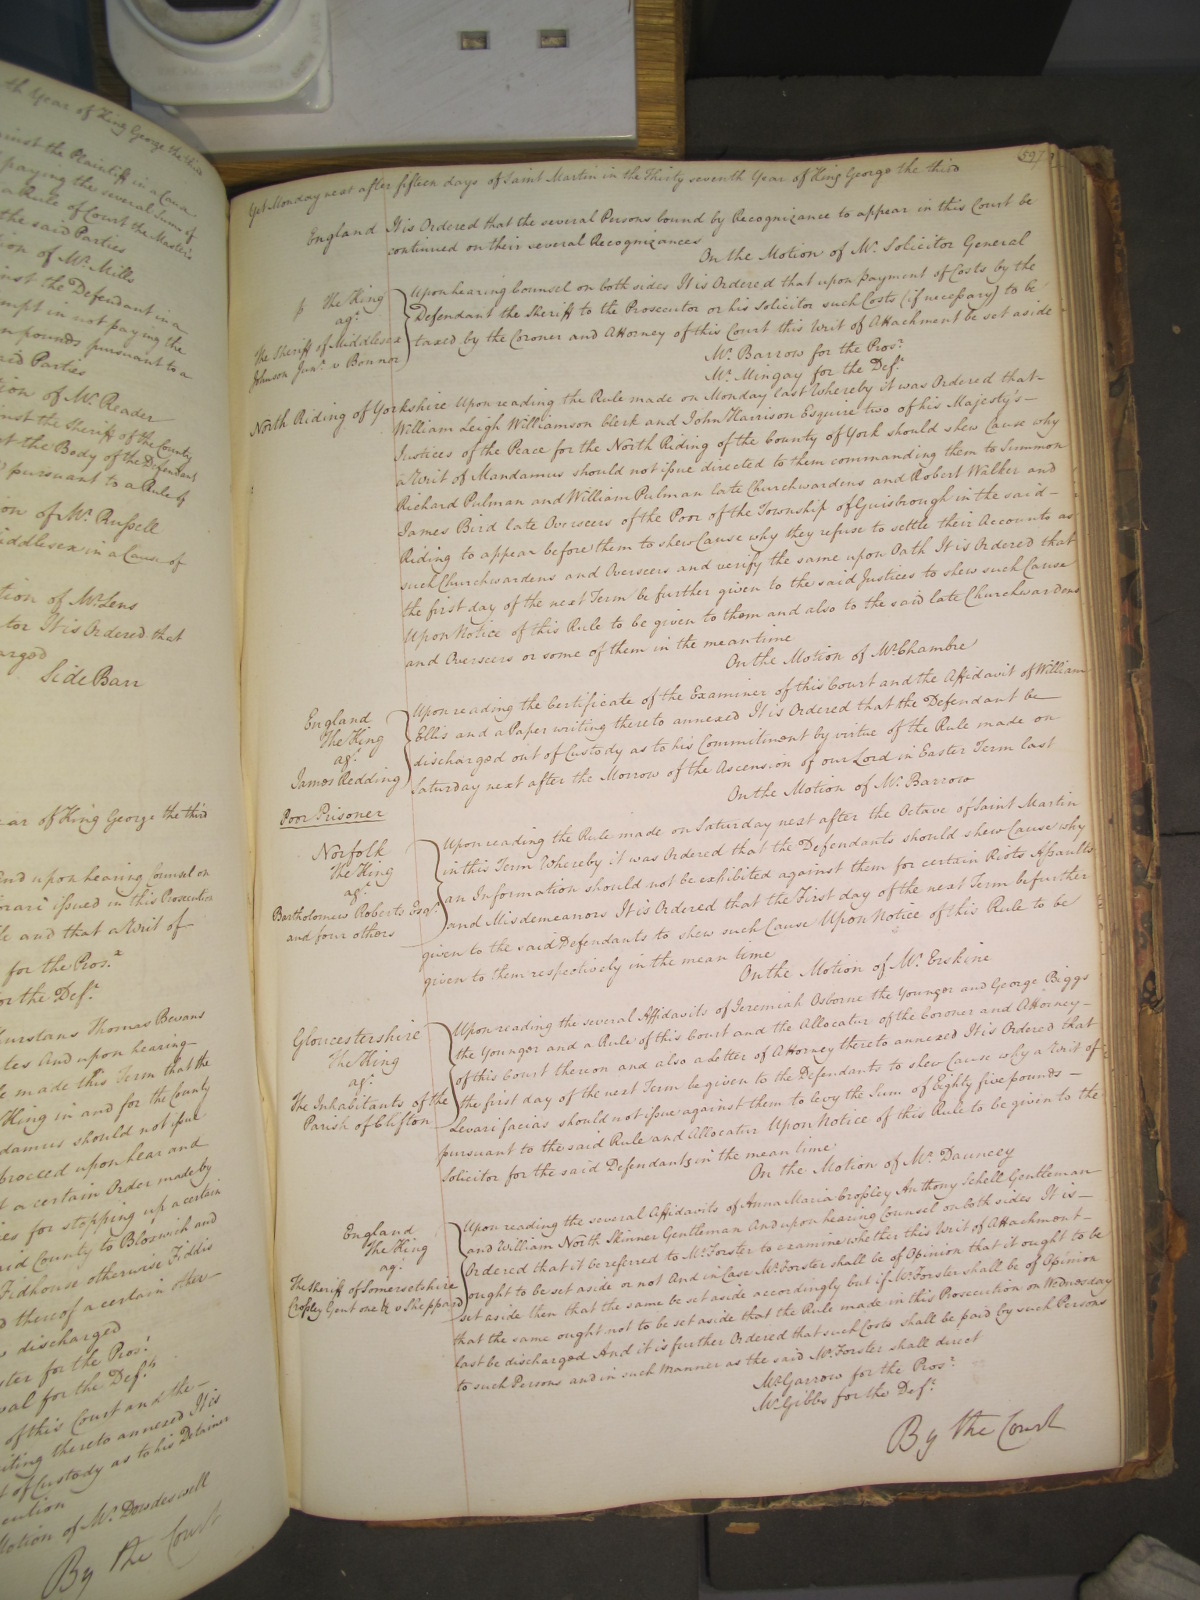 th Year of King George the third
against the Plaintiff in a Cause
paying the several Sums of
a Rule of Court the Master's
the said Parties
tion of Mr. Mills
inst the Defendant in a
empt in not paying the
pounds pursuant to a
aid Parties
tion of Mr. Reader
inst the Sheriff of the County
at the Body of the Defendant
pursuant to a Rule of
on of Mr. Russell
iddlesex in a Cause of
tion of Mr. Lens
tor It is Ordered that
arged
Side Barr
ear of King George the third
And upon hearing Counsel on
orari issued in this Prosecution
and that a Writ of
for the Pros.r
for the Def.t
Thurstans Thomas Bevans
tes And upon hearing
made this Term that the
King in and for the County
damus should not issue
proceed upon hear and
t a certain Order made by
es for stopping up a certain
aid County to Bloxwich and
Fidhouse otherwise Fiddis
thereof a certain other
discharged
ster for the Pros.r
val for the Def.ts
of this Court and the
iting thereto annexed It is
t of Custody as to his Detainer
ecution
Motion of Mr. Dowdeswell
By the Court
597
Yet Monday next after fifteen days of Saint Martin in the Thirty seventh Year of King George the third
England It is Ordered that the several Persons bound by Recognizance to appear in this Court be
continued on their several Recognizances
On the Motion of Mr. Solicitor General
The King
ag.t
The Sheriff of Middlesex
Johnson Jun.r v Bonnor
Upon hearing Counsel on both sides It is Ordered that upon payment of Costs by the
Defendant the Sheriff to the Prosecutor or his Solicitor such Costs (if necessary) to be
taxed by the Coroner and Attorney of this Court this Writ of Attachment be set aside
Mr. Barrow for the Pros.r
Mr. Mingay for the Def.t
North Riding of Yorkshire Upon reading the Rule made on Monday last Whereby it was Ordered that
William Leigh Williamson Clerk and John Harrison Esquire two of his Majesty's
Justices of the Peace for the North Riding of the County of York should shew Cause why
a Writ of Mandamus should not issue directed to them commanding them to Summon
Richard Pulman and William Pulman late Churchwardens and Robert Walker and
James Bird late Overseers of the Poor of the Township of Guisbrough in the said
Riding to appear before them to shew Cause why they refuse to settle their Accounts as
such Churchwardens and Overseers and verify the same upon Oath It is Ordered that
the first day of the next Term be further given to the said Justices to shew such Cause
Upon Notice of this Rule to be given to them and also to the said late Churchwardens
and Overseers or some of them in the mean time
On the Motion of Mr. Chambre
England
The King
ag.t
James Redding
Poor Prisoner
Upon reading the Certificate of the Examiner of this Court and the Affidavit of William
Ellis and a Paper writing thereto annexed It is Ordered that the Defendant be
discharged out of Custody as to his Commitment by virtue of the Rule made on
Saturday next after the Morrow of the Ascension of our Lord in Easter Term last
On the Motion of Mr. Barrow
Norfolk
The King
ag.t
Bartholomew Roberts Esq.r
and four others
Upon reading the Rule made on Saturday next after the Octave of Saint Martin
in this Term Whereby it was Ordered that the Defendants should shew Cause why
an Information should not be exhibited against them for certain Riots Assaults
and Misdemeanors It is Ordered that the First day of the next Term be further
given to the said Defendants to shew such Cause Upon Notice of this Rule to be
given to them respectively in the mean time
On the Motion of Mr. Erskine
Gloucestershire
The King
ag.t
The Inhabitants of the
Parish of Clifton
Upon reading the several Affidavits of Jeremiah Osborne the Younger and George Biggs
the Younger and a Rule of this Court and the Allocatur of the Coroner and Attorney
of this Court thereon and also a Letter of Attorney thereto annexed It is Ordered that
the first day of the next Term be given to the Defendants to shew Cause why a Writ of
Levari facias should not issue against them to levy the Sum of Eighty five pounds
pursuant to the said Rule and Allocatur Upon Notice of this Rule to be given to the
Solicitor for the said Defendants in the mean time
On the Motion of Mr. Dauncey
England
The King
ag.t
The Sheriff of Somersetshire
Cropley Gent one &c v Sheppard
Upon reading the several Affidavits of Anna Maria Cropley Anthony Schell Gentleman
and William North Skinner Gentleman And upon hearing Counsel on both sides It is
Ordered that it be referred to Mr. Forster to examine whether this Writ of Attachment
ought to be set aside or not And in Case Mr. Forster shall be of Opinion that it ought to be
set aside then that the same be set aside accordingly but if Mr. Forster shall be of Opinion
that the same ought not to be set aside that the Rule made in this Prosecution on Wednesday
last be discharged And it is further Ordered that such Costs shall be paid by such Persons
to such Persons and in such manner as the said Mr. Forster shall direct
Mr. Garrow for the Pros.r
Mr. Gibbs for the Def.t
By the Court